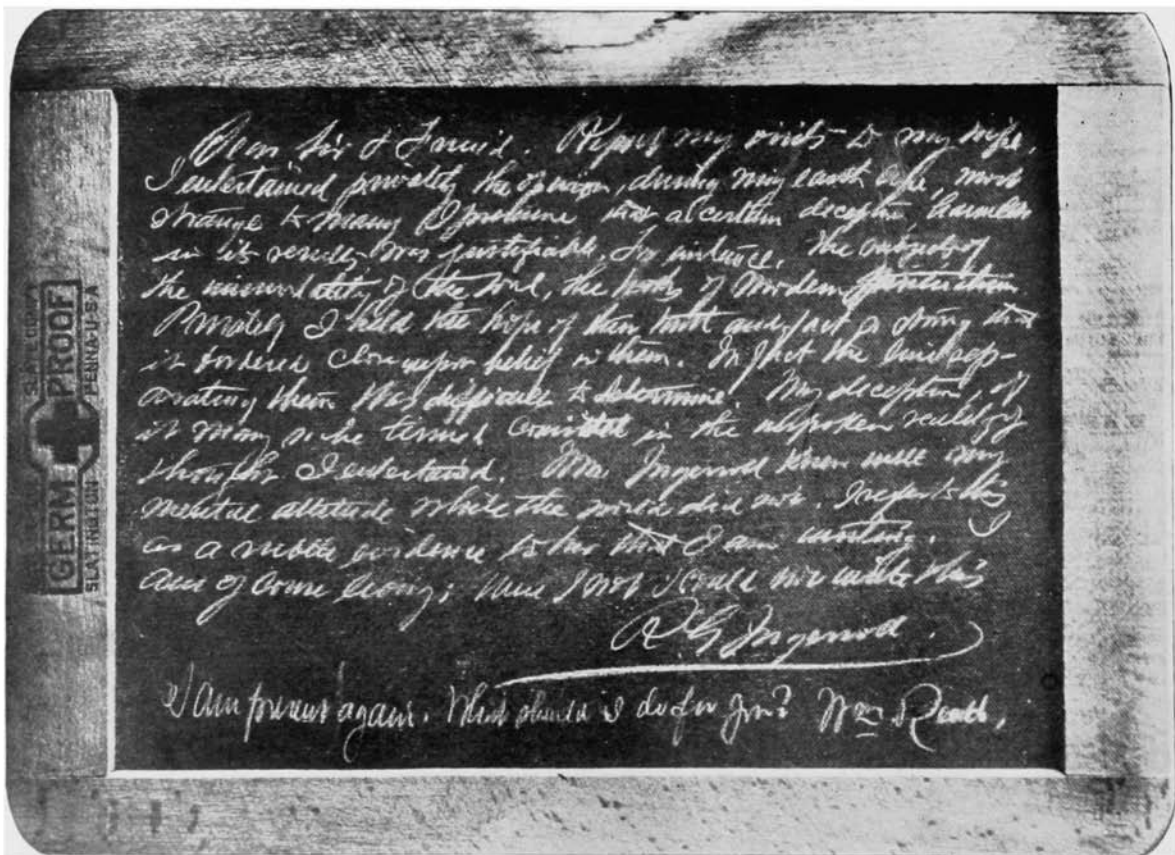 Dear Sir & Friend. Report my visits to my wife.
I entertained privately the opinion, during my earth life, most
strange to many I presume that a certain deception, harmless
in its results was justifiable, for instance, the subjects of
the immortality of the soul, the truths of Modern Spiritualism
Privately I held the hope of their truth and fact so strong that
it bordered close upon belief in them. In fact the line sep-
arating them was difficult to determine. My deception, if
it may so be termed consisted in the unspoken reality of
thoughts I entertained. Mrs. Ingersoll knew well my
mental attitude while the world did not. I regard this
as a subtle evidence to her that I am writing. I
am of course living; were I not I could not write this
R G Ingersoll.
I am present again. What should I do for you? Wm
GERM PROOF
SLATINGTON PENNA-U-S-A